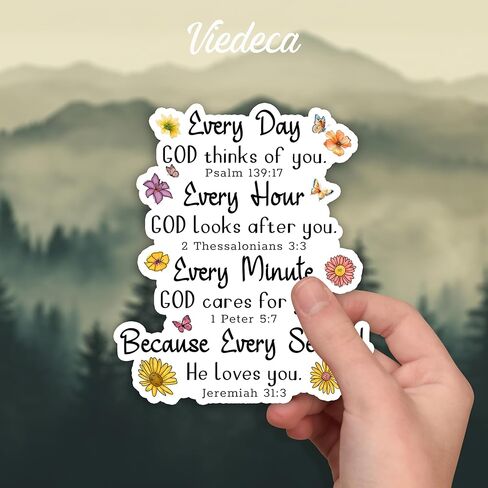 Viedeca
Every Day
GOD thinks of you.
Psalm 139:17
Every Hour
GOD looks after you.
2 Thessalonians 3:3
Every Minute
GOD cares for
1 Peter 5:7
Because Every
He loves you.
Jeremiah 31:3